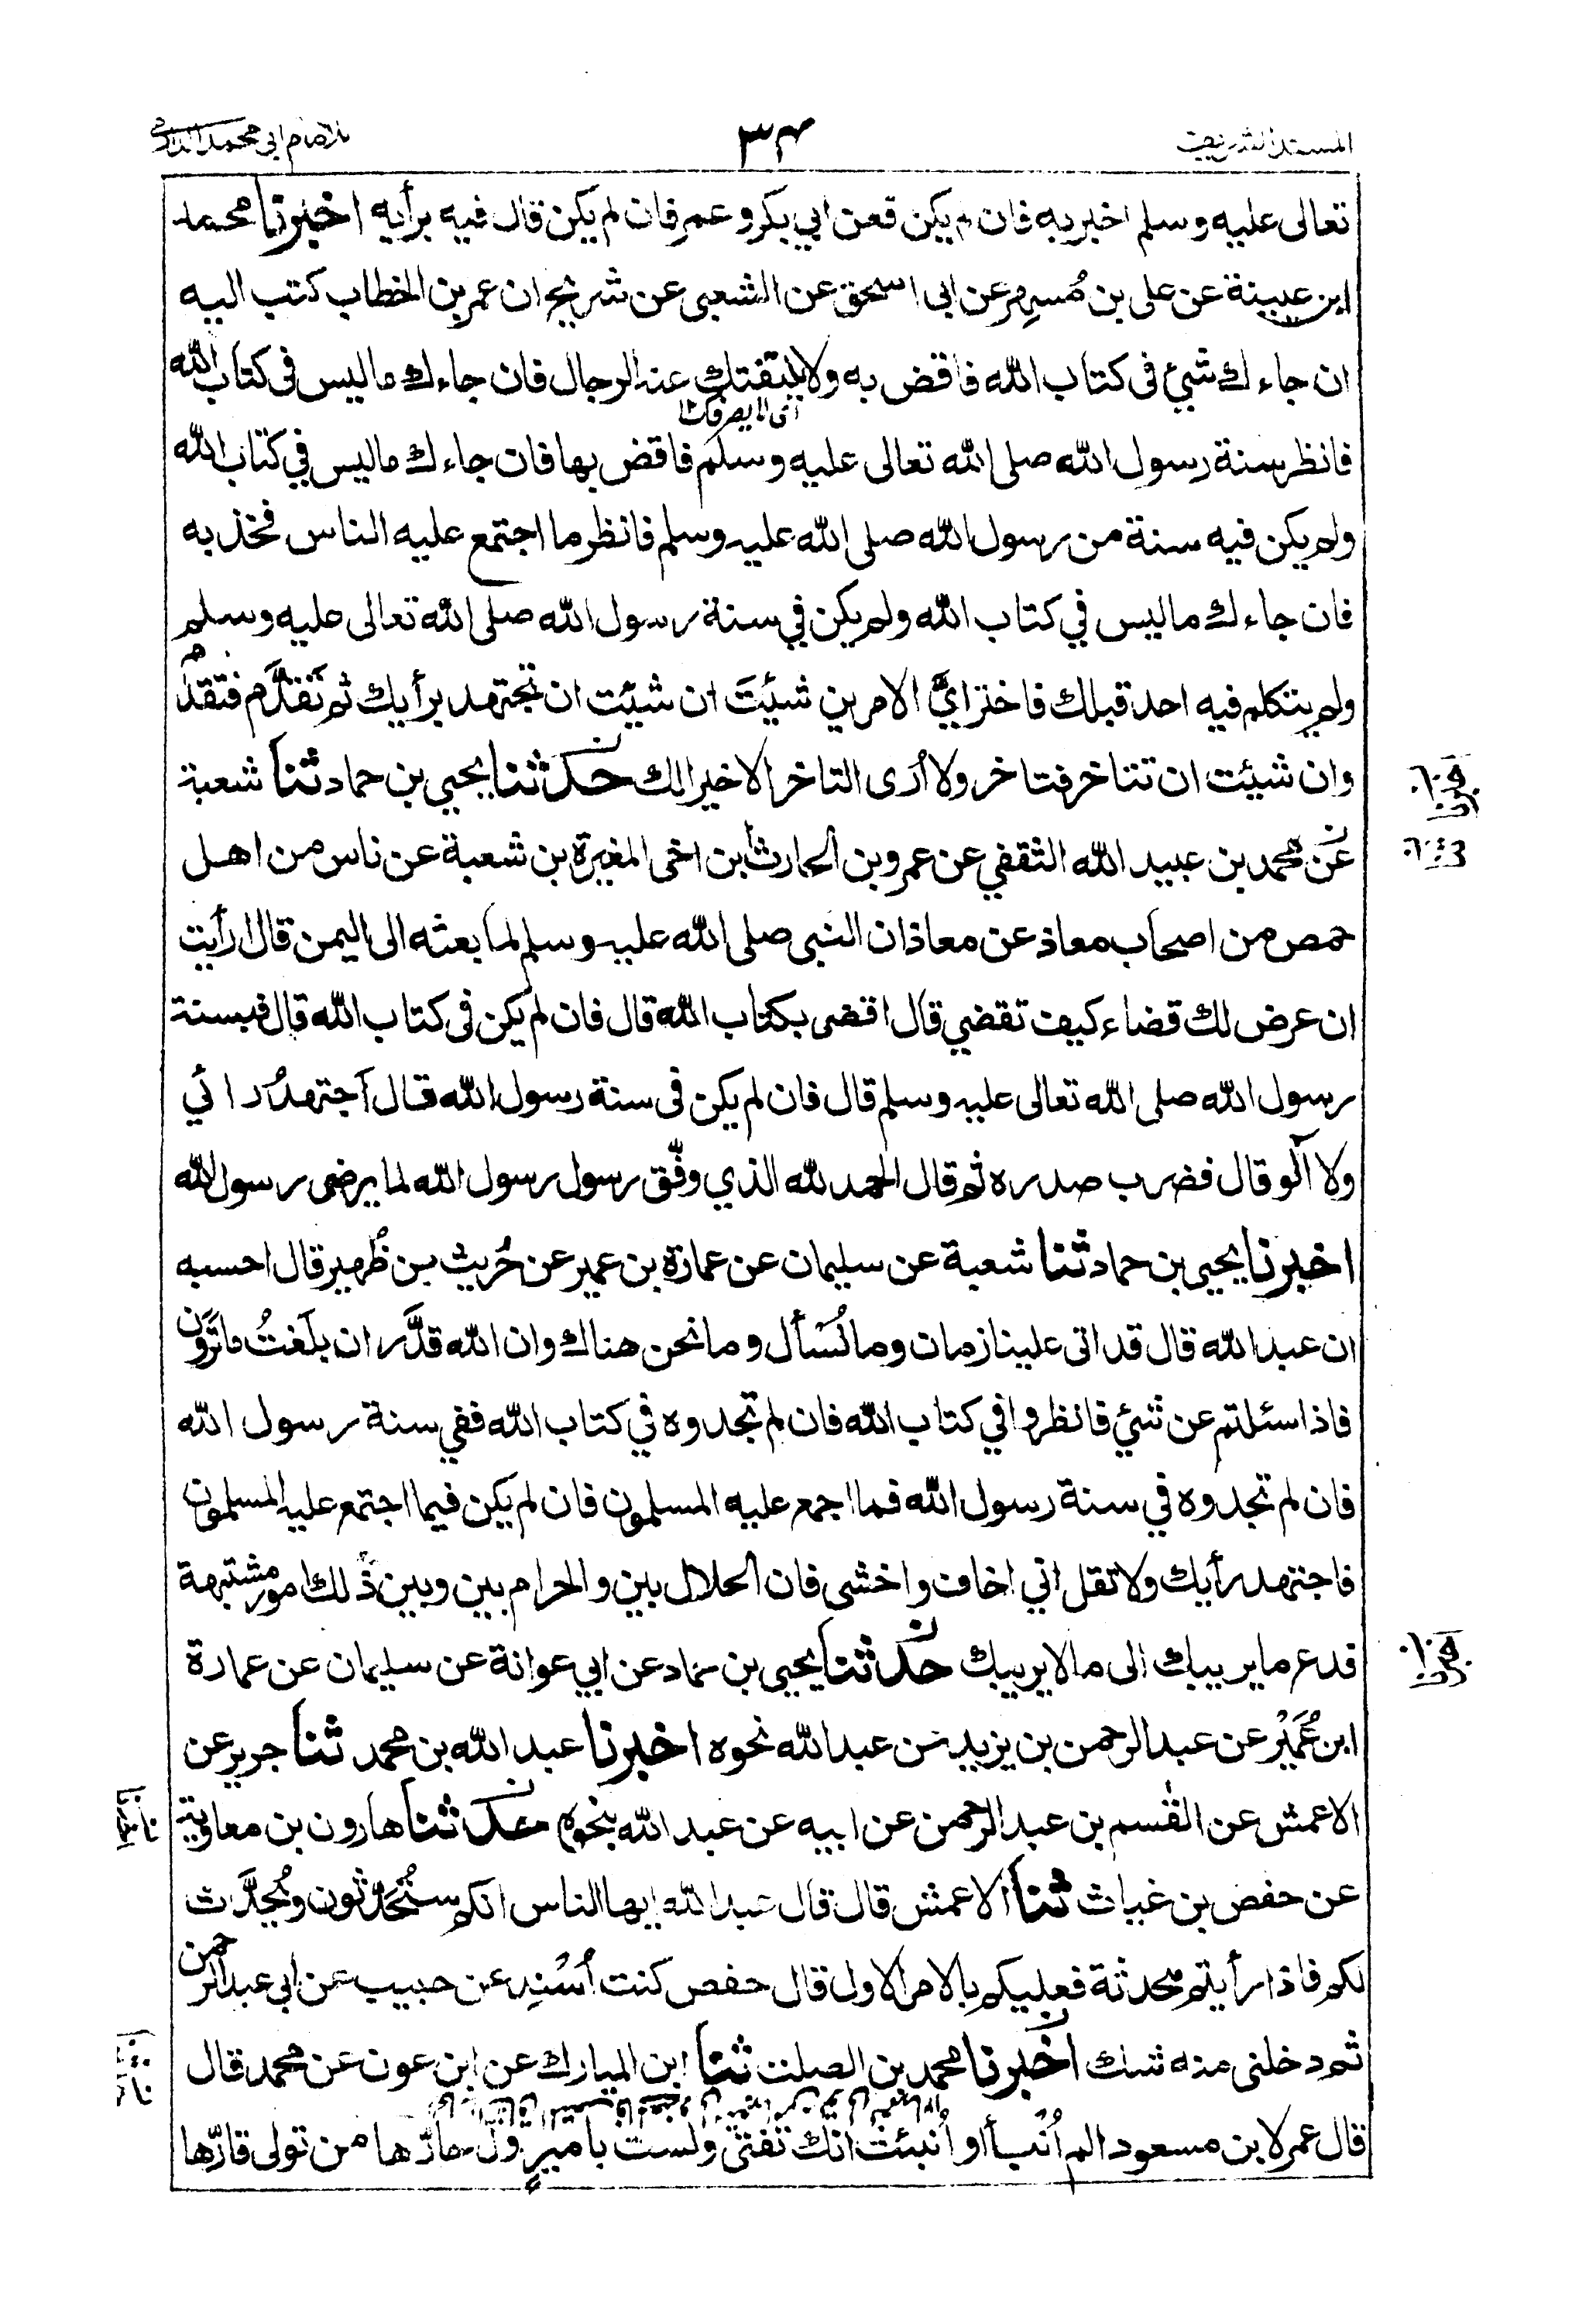 المسند الشريف
٣٤
للامام ابي محمد الدارمي
تعالى عليه وسلم اخبر به فان لم يكن فعن ابي بكر و عمر فان لم يكن قال فيه برأيه اخبرنا محمد
ابن عيينة عن على بن مُسهِر عن ابى اسحق عن الشعبى عن شريح ان عمر بن الخطاب كتب اليه
ان جاءك شيئ فى كتاب الله فاقض به ولا يلتفتك عنه الرجال فان جاءك ما ليس فى كتاب الله
اى لا يصرفك
فانظر سنة رسول الله صلى الله تعالى عليه وسلم فاقض بها فان جاءك ما ليس في كتاب الله
ولم يكن فيه سنة من رسول الله صلى الله عليه وسلم فانظر ما اجتمع عليه الناس فخذ به
فان جاءك ما ليس في كتاب الله ولم يكن في سنة رسول الله صلى الله تعالى عليه وسلم
ولم يتكلم فيه احد قبلك فاختر ايَّ الامرين شئيتَ ان شيئت ان تجتهد برأيك ثم تَقَدَّم فتقدم
وان شيئت ان تتاخر فتاخر ولا اُرى التاخر الا خيرا لك حدثنا يحيي بن حماد ثنا شعبة
عن محمد بن عبيد الله الثقفي عن عمرو بن الحارث ابن اخى المغيرة بن شعبة عن ناس من اهل
حمص من اصحاب معاذ عن معاذ ان النبى صلى الله عليه وسلم لما بعثه الى اليمن قال ارأيت
ان عرض لك قضاء كيف تقضي قال اقضى بكتاب الله قال فان لم يكن فى كتاب الله قال فبسنة
رسول الله صلى الله تعالى عليه وسلم قال فان لم يكن فى سنة رسول الله قال اَجتهدُ رائي
ولا آلو قال فضرب صدره ثم قال الحمد لله الذي وفّق رسول رسول الله لما يرضى رسول الله
اخبرنا يحيى بن حماد ثنا شعبة عن سليمان عن عمارة بن عمير عن حُريث بن ظُهير قال احسبه
ان عبد الله قال قد اتى علينا زمان وما نُسْأل وما نحن هناك وان الله قدَّر ان بلَغتُ ما تَرَون
فاذا سئلتم عن شيئ فانظروا في كتاب الله فان لم تجدوه في كتاب الله ففي سنة رسول الله
فان لم تجدوه في سنة رسول الله فما اجمع عليه المسلمون فان لم يكن فيما اجتمع عليه المسلمون
فاجتهد رأيك ولا تقل اني اخاف واخشى فان الحلال بين والحرام بين وبين ذلك امور مشتبهة
فدع ما يريبك الى ما لا يريبك حدثنا يحيى بن حماد عن ابي عوانة عن سليمان عن عمارة
ابن عُمَيْر عن عبد الرحمن بن يزيد عن عبد الله نحوه اخبرنا عبد الله بن محمد ثنا جرير عن
الاعمش عن القسم بن عبد الرحمن عن ابيه عن عبد الله بنحوه حدثنا هارون بن معاوية
عن حفص بن غياث ثنا الاعمش قال قال عبد الله ايها الناس انكم ستُحَدِّثون ويُحدَّث
لكم فاذا رأيتم محدثة فعليكم بالامر الاولى قال حفص كنت اُسْنِد عن حبيب عن ابى عبد الرحمن
ثم دخلنى منه شك اخبرنا محمد بن الصلت ثنا ابن المبارك عن ابن عون عن محمد قال
قال عمر لابن مسعود الم اُنْبأ او اُنبئتُ انك تفتى ولست بامير ولّ حارّها من تولى قارّها